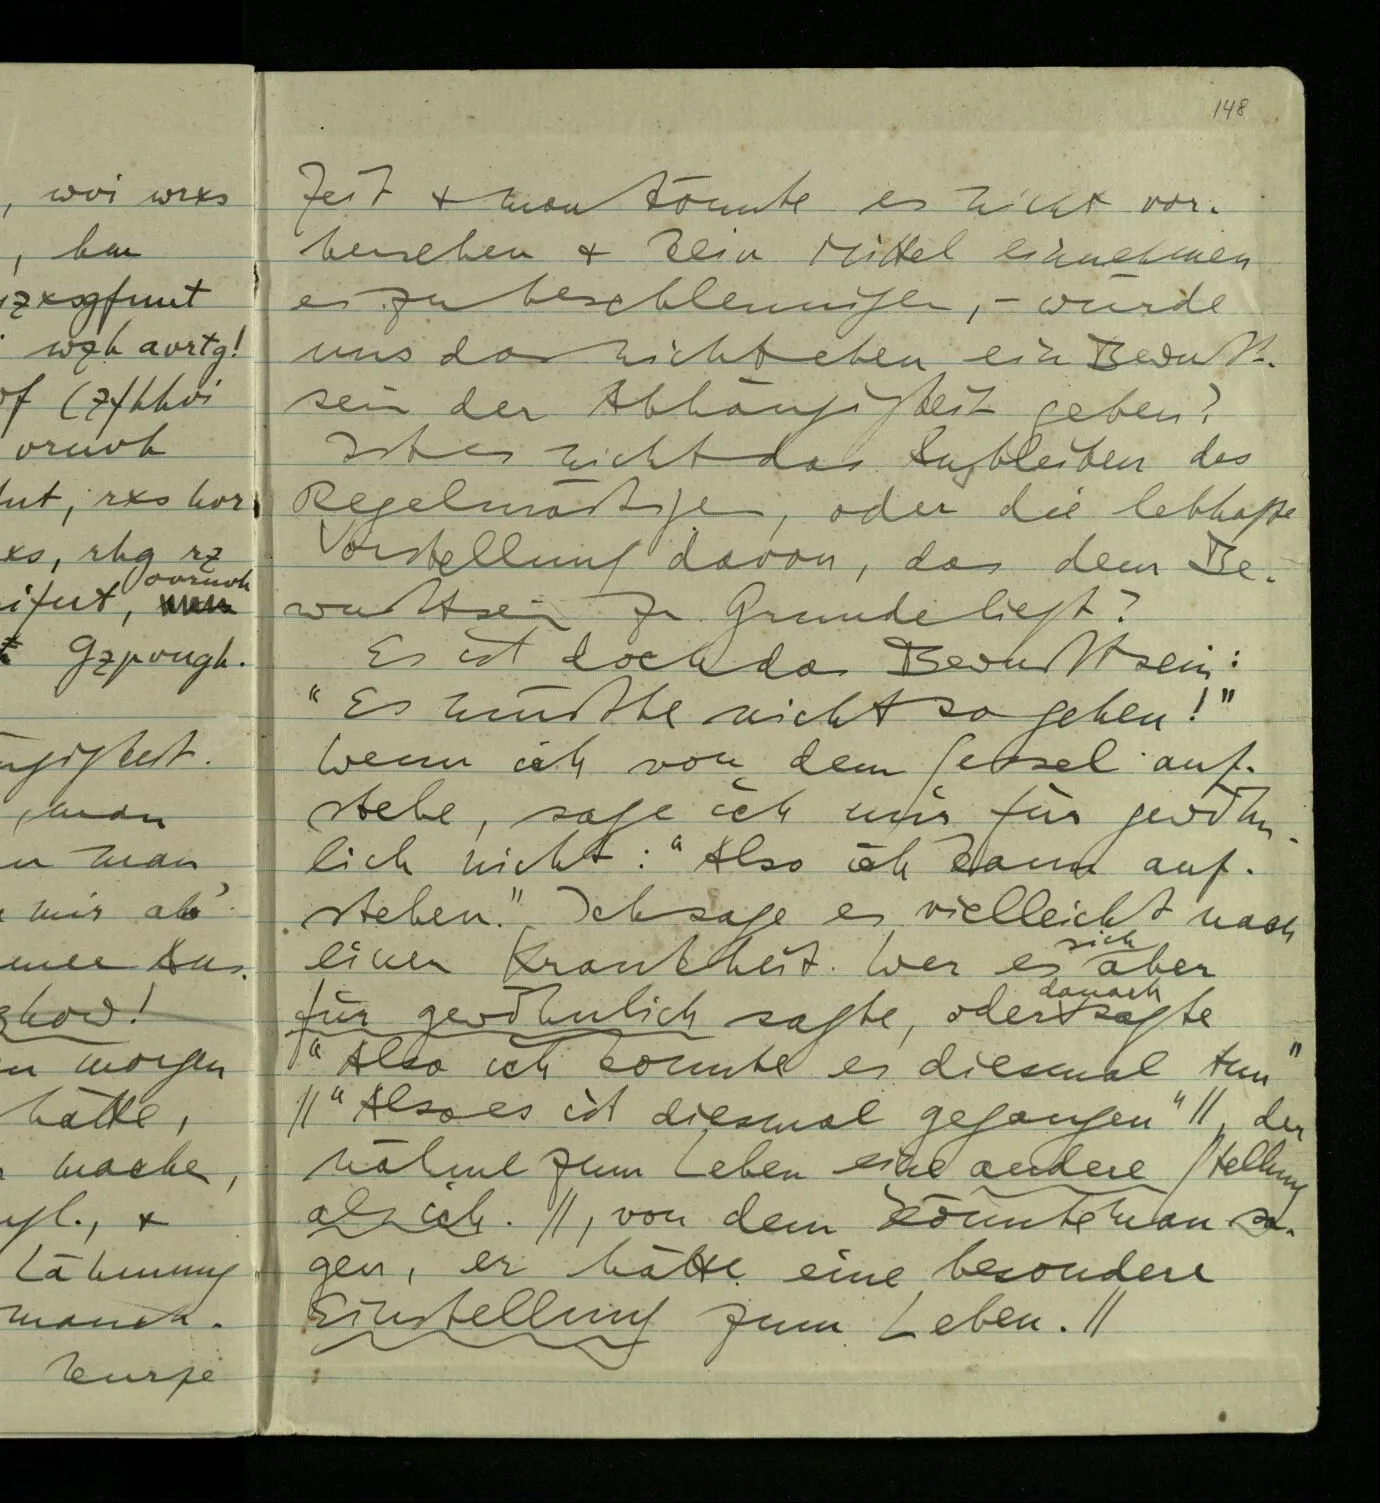 , wvi wrxs
, hm
wzh avrtg!
oruoh
xs, rhg rz
ovruoh
Gzpovgh.
man
n man
mir ab
mee Aus-
n morgen
hätte,
mache,
&
Lähmung
manch.
kurze
148
Zeit & man könnte es nicht vor-
hersehen & kein Mittel einnehmen
es zu beschleunigen, – würde
uns das nicht eben ein Bewußt-
sein der Abhängigkeit geben?
Ist es nicht das Ausbleiben des
Regelmäßigen, oder die lebhafte
Vorstellung davon, das dem Be-
wußtsein zu Grunde liegt?
Es ist doch das Bewußtsein:
"Es müßte nicht so gehen!"
Wenn ich von dem Sessel auf-
stehe, sage ich mir für gewöhn-
lich nicht: "Also ich kann auf-
stehen." Ich sage es vielleicht nach
einer Krankheit. Wer es sich aber
für gewöhnlich sagte, oder danach sagte
"Also ich konnte es diesmal tun"
//"Also es ist diesmal gegangen"//, der
nähme zum Leben eine andere Stellung
als ich. //, von dem könnte man sa-
gen, er hätte eine besondere
Einstellung zum Leben.//